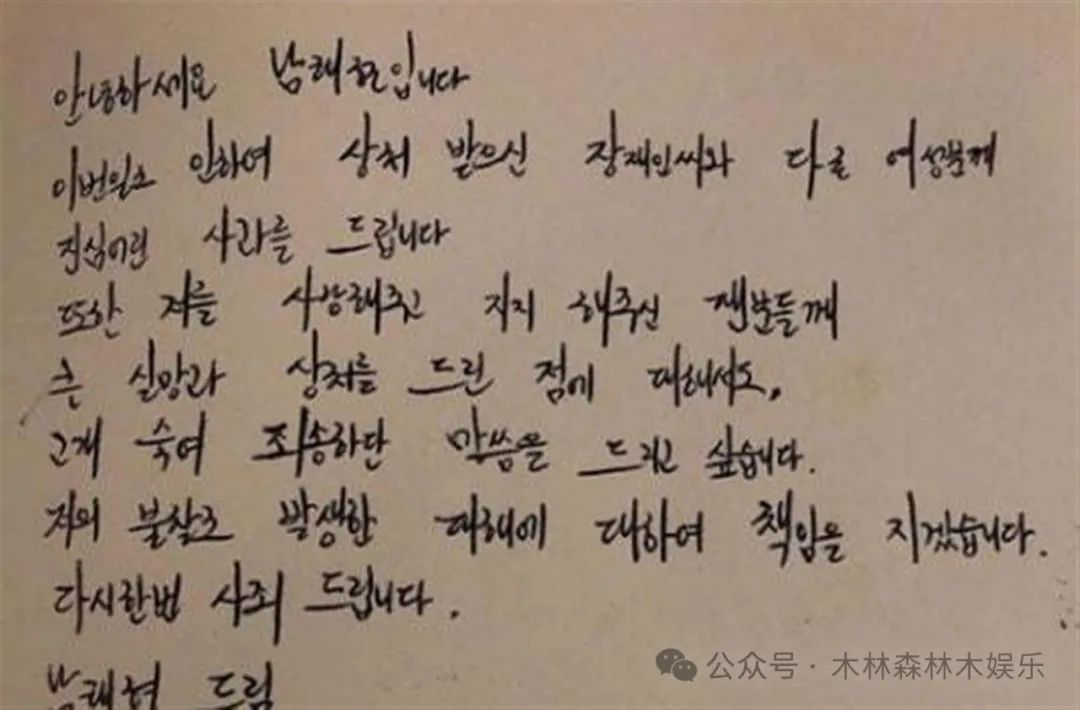 안녕하세요 남태현입니다
이번일로 인하여 상처 받으신 장재인씨와 다른 여성분께
진심어린 사과를 드립니다
또한 저를 사랑해주고 지지 해주신 팬분들께
큰 실망과 상처를 드린 점에 대해서도,
고개 숙여 죄송하단 말씀을 드리고 싶습니다.
저의 불찰로 발생한 피해에 대하여 책임을 지겠습니다.
다시한번 사죄 드립니다.
남태현 드림
公众号 · 木林森林木娱乐